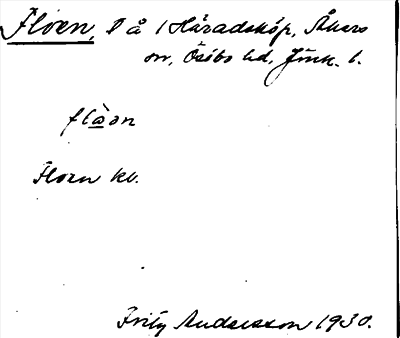 Floen, på 1 Häradsköp, Åkers
sn, Östbo hd, Jönk. l.
flåən
Floen kv.
Fritz Andersson 1930.